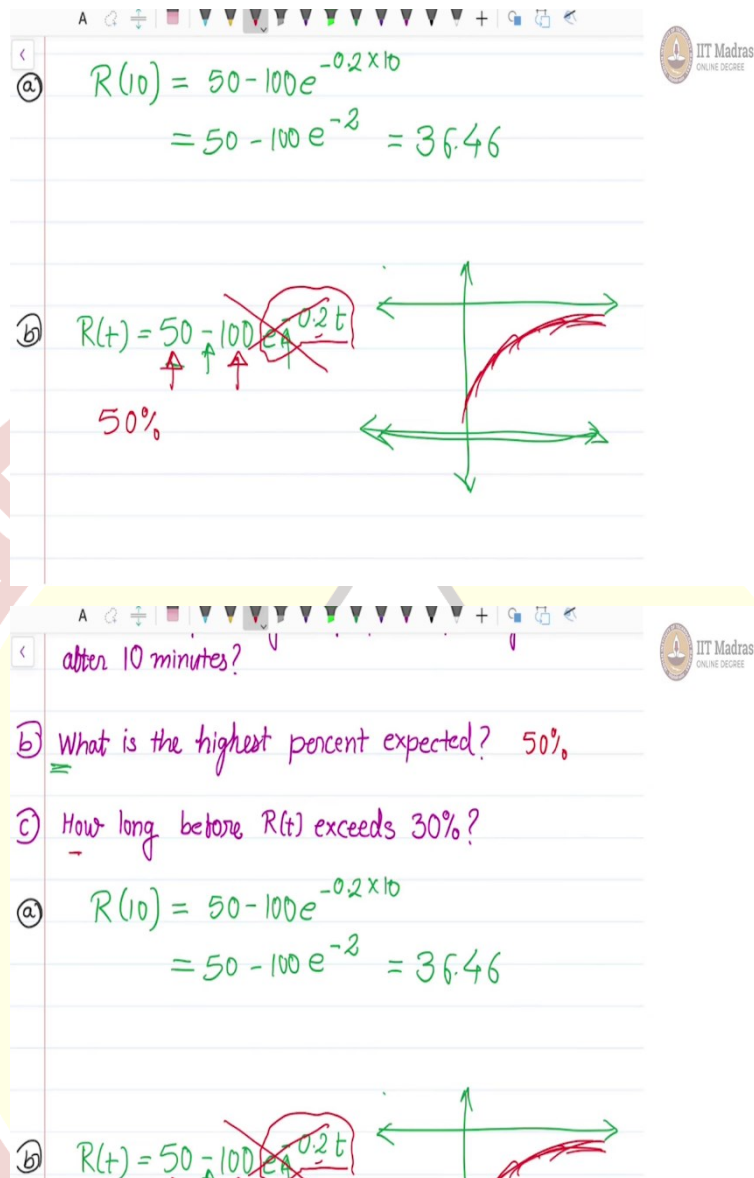 A
IIT Madras
ONLINE DEGREE
ⓐ R(10) = 50 - 100e^{-0.2×10}
= 50 - 100 e^{-2} = 36.46
ⓑ R(t) = 50 - 100 e^{-0.2t}
50%
A
IIT Madras
ONLINE DEGREE
after 10 minutes?
ⓑ What is the highest percent expected? 50%
ⓒ How long before R(t) exceeds 30%?
ⓐ R(10) = 50 - 100e^{-0.2×10}
= 50 - 100 e^{-2} = 36.46
ⓑ R(t) = 50 - 100 e^{-0.2t}